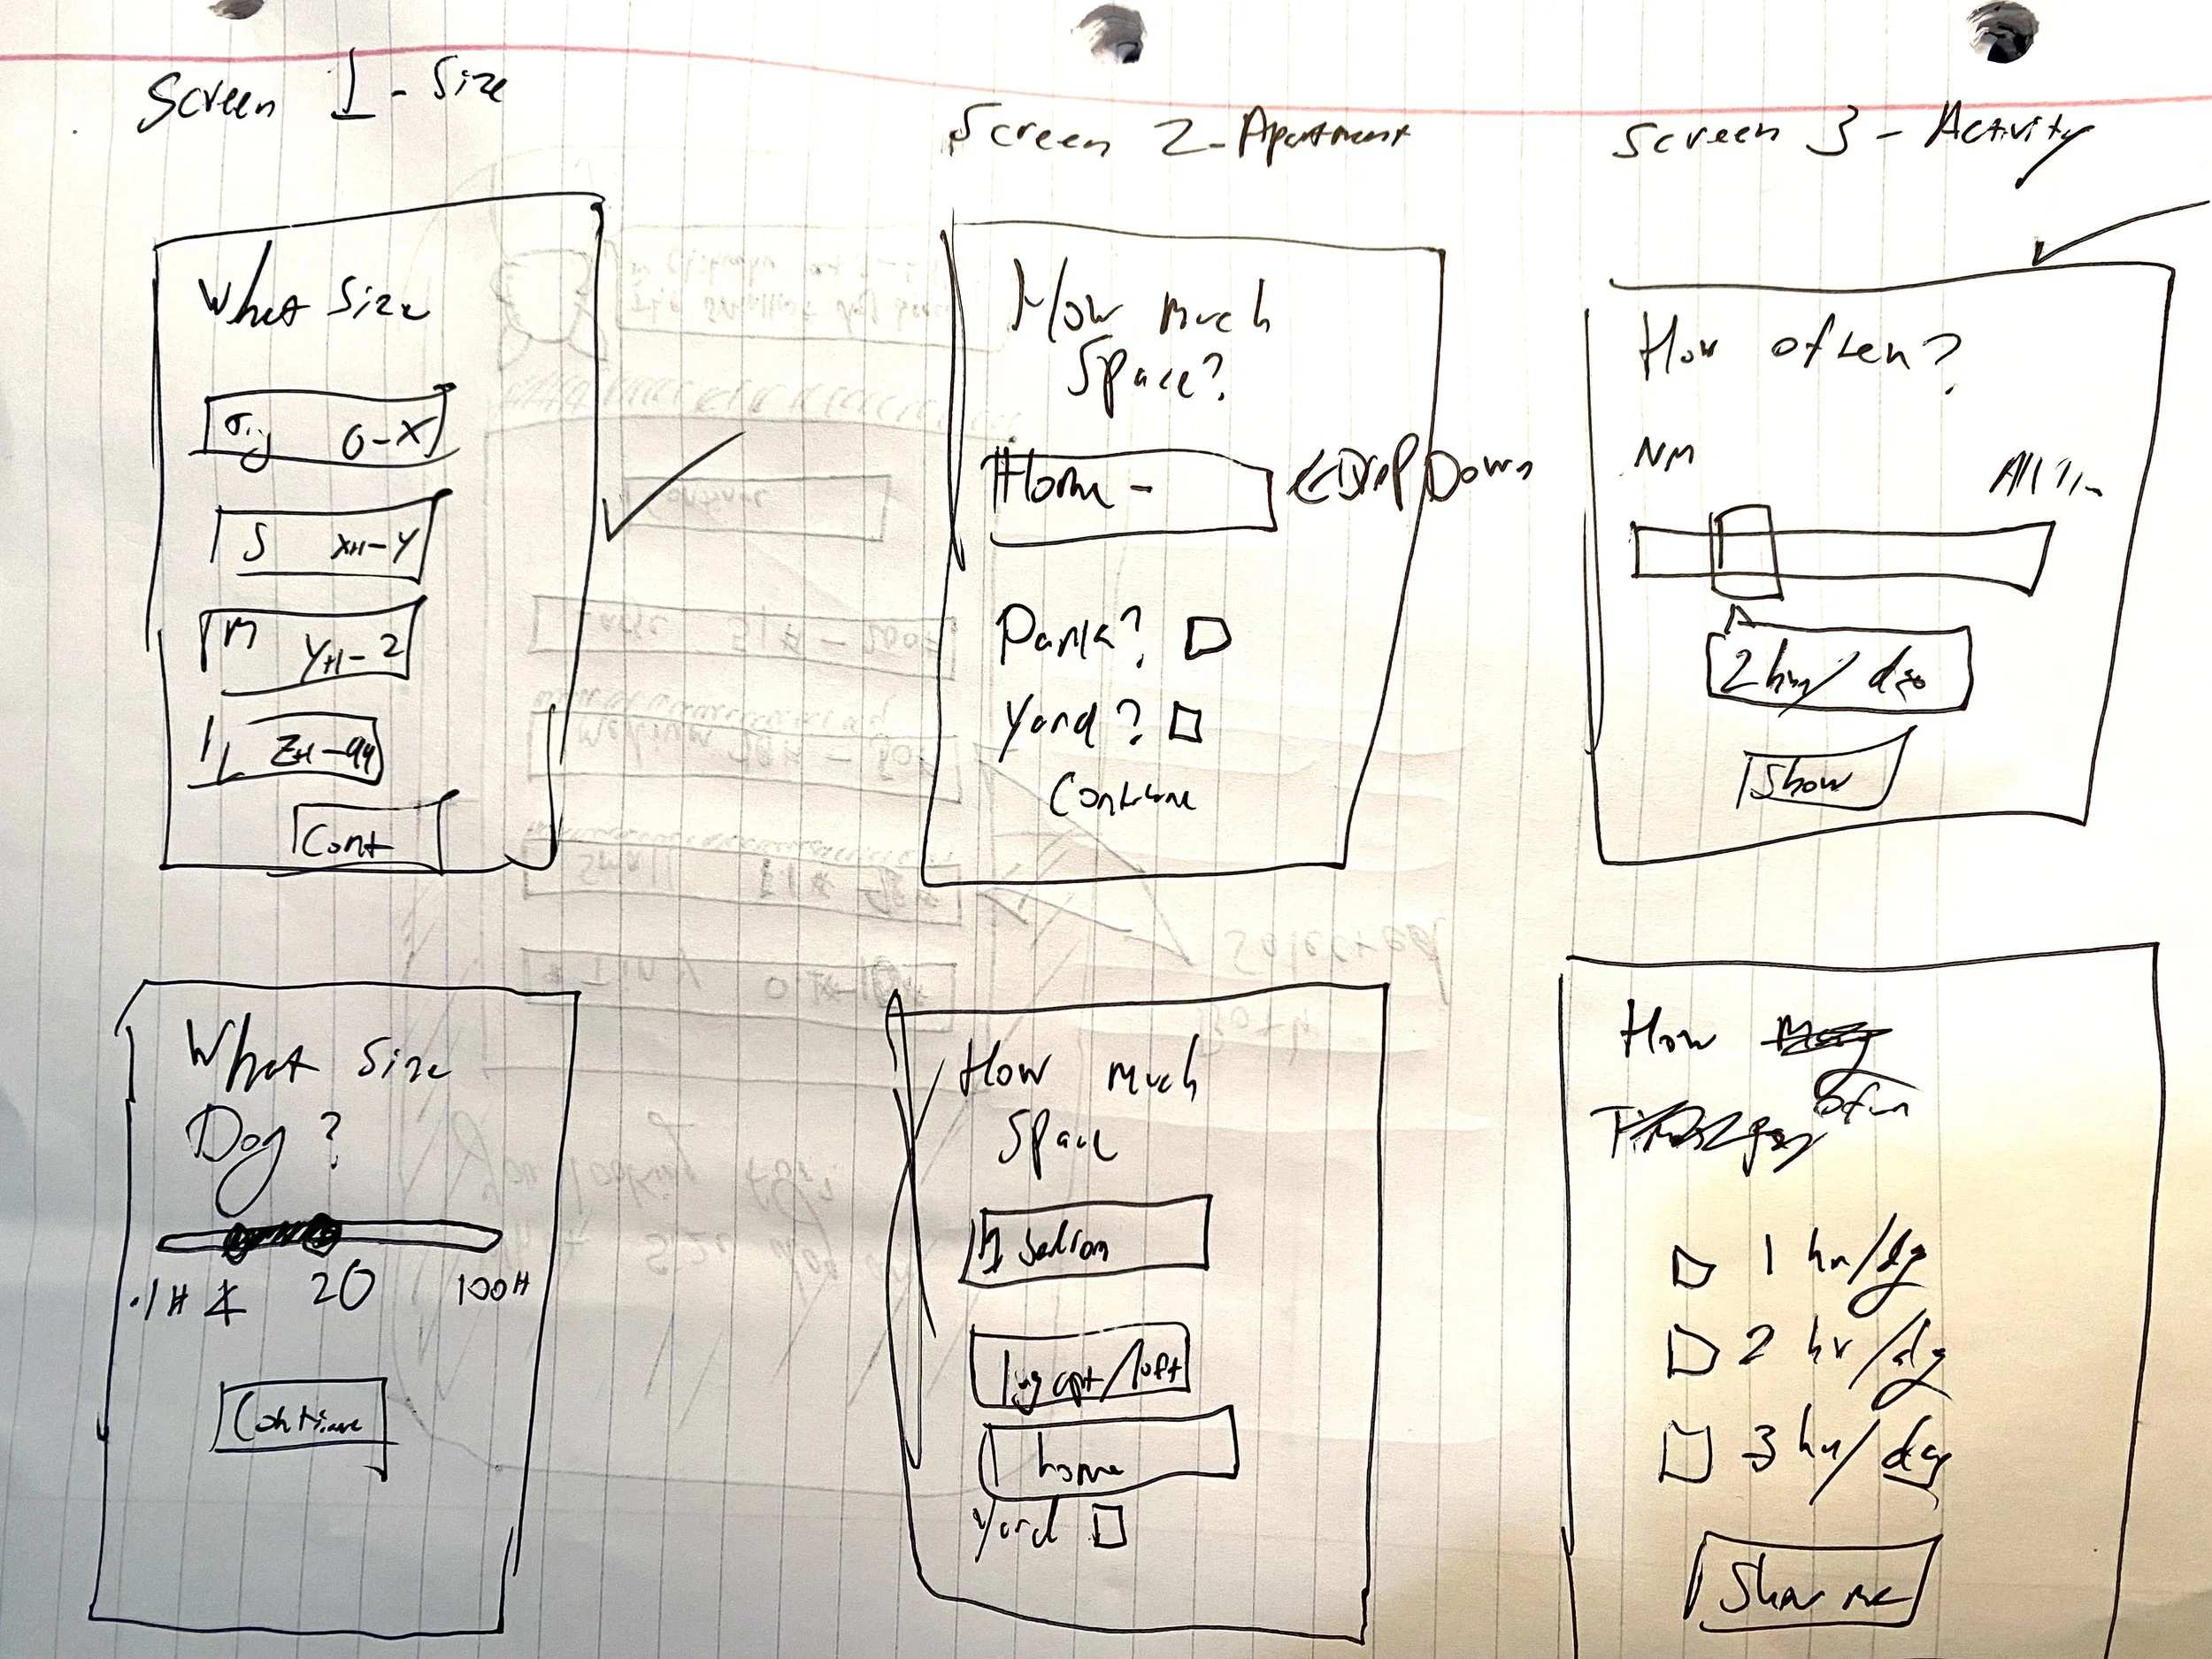 Screen 1 - Size
What Size
0-X
S X#-Y
M Y#-Z
L Z#-99
Cont
Screen 2 - Apartment
How much
Space?
Home -
← Drop Down
Park?
Yard?
Continue
Screen 3 - Activity
How often?
All Tim
2 hrs/day
Show
What Size
Dog?
20 100#
Continue
How much
Space
1 bedroom
lrg apt/loft
home
Yard
How
often
1 hr/day
2 hr/day
3 hr/day
Show me